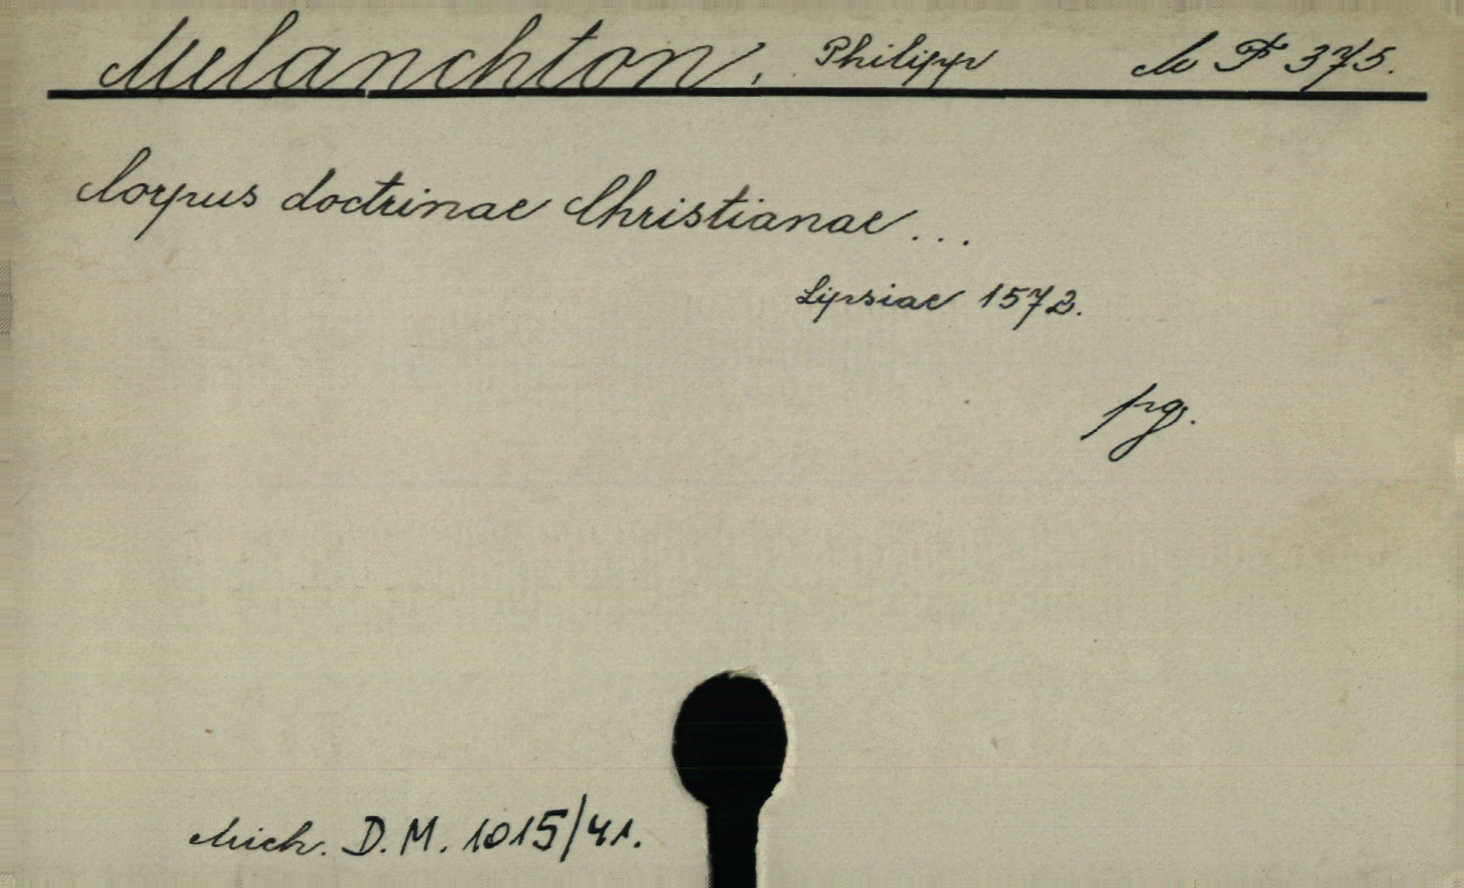 Melanchton, Philipp Cb F 375.
Corpus doctrinae Christianae...
Lipsiae 1572.
pg.
Mich. D. M. 1015/41.